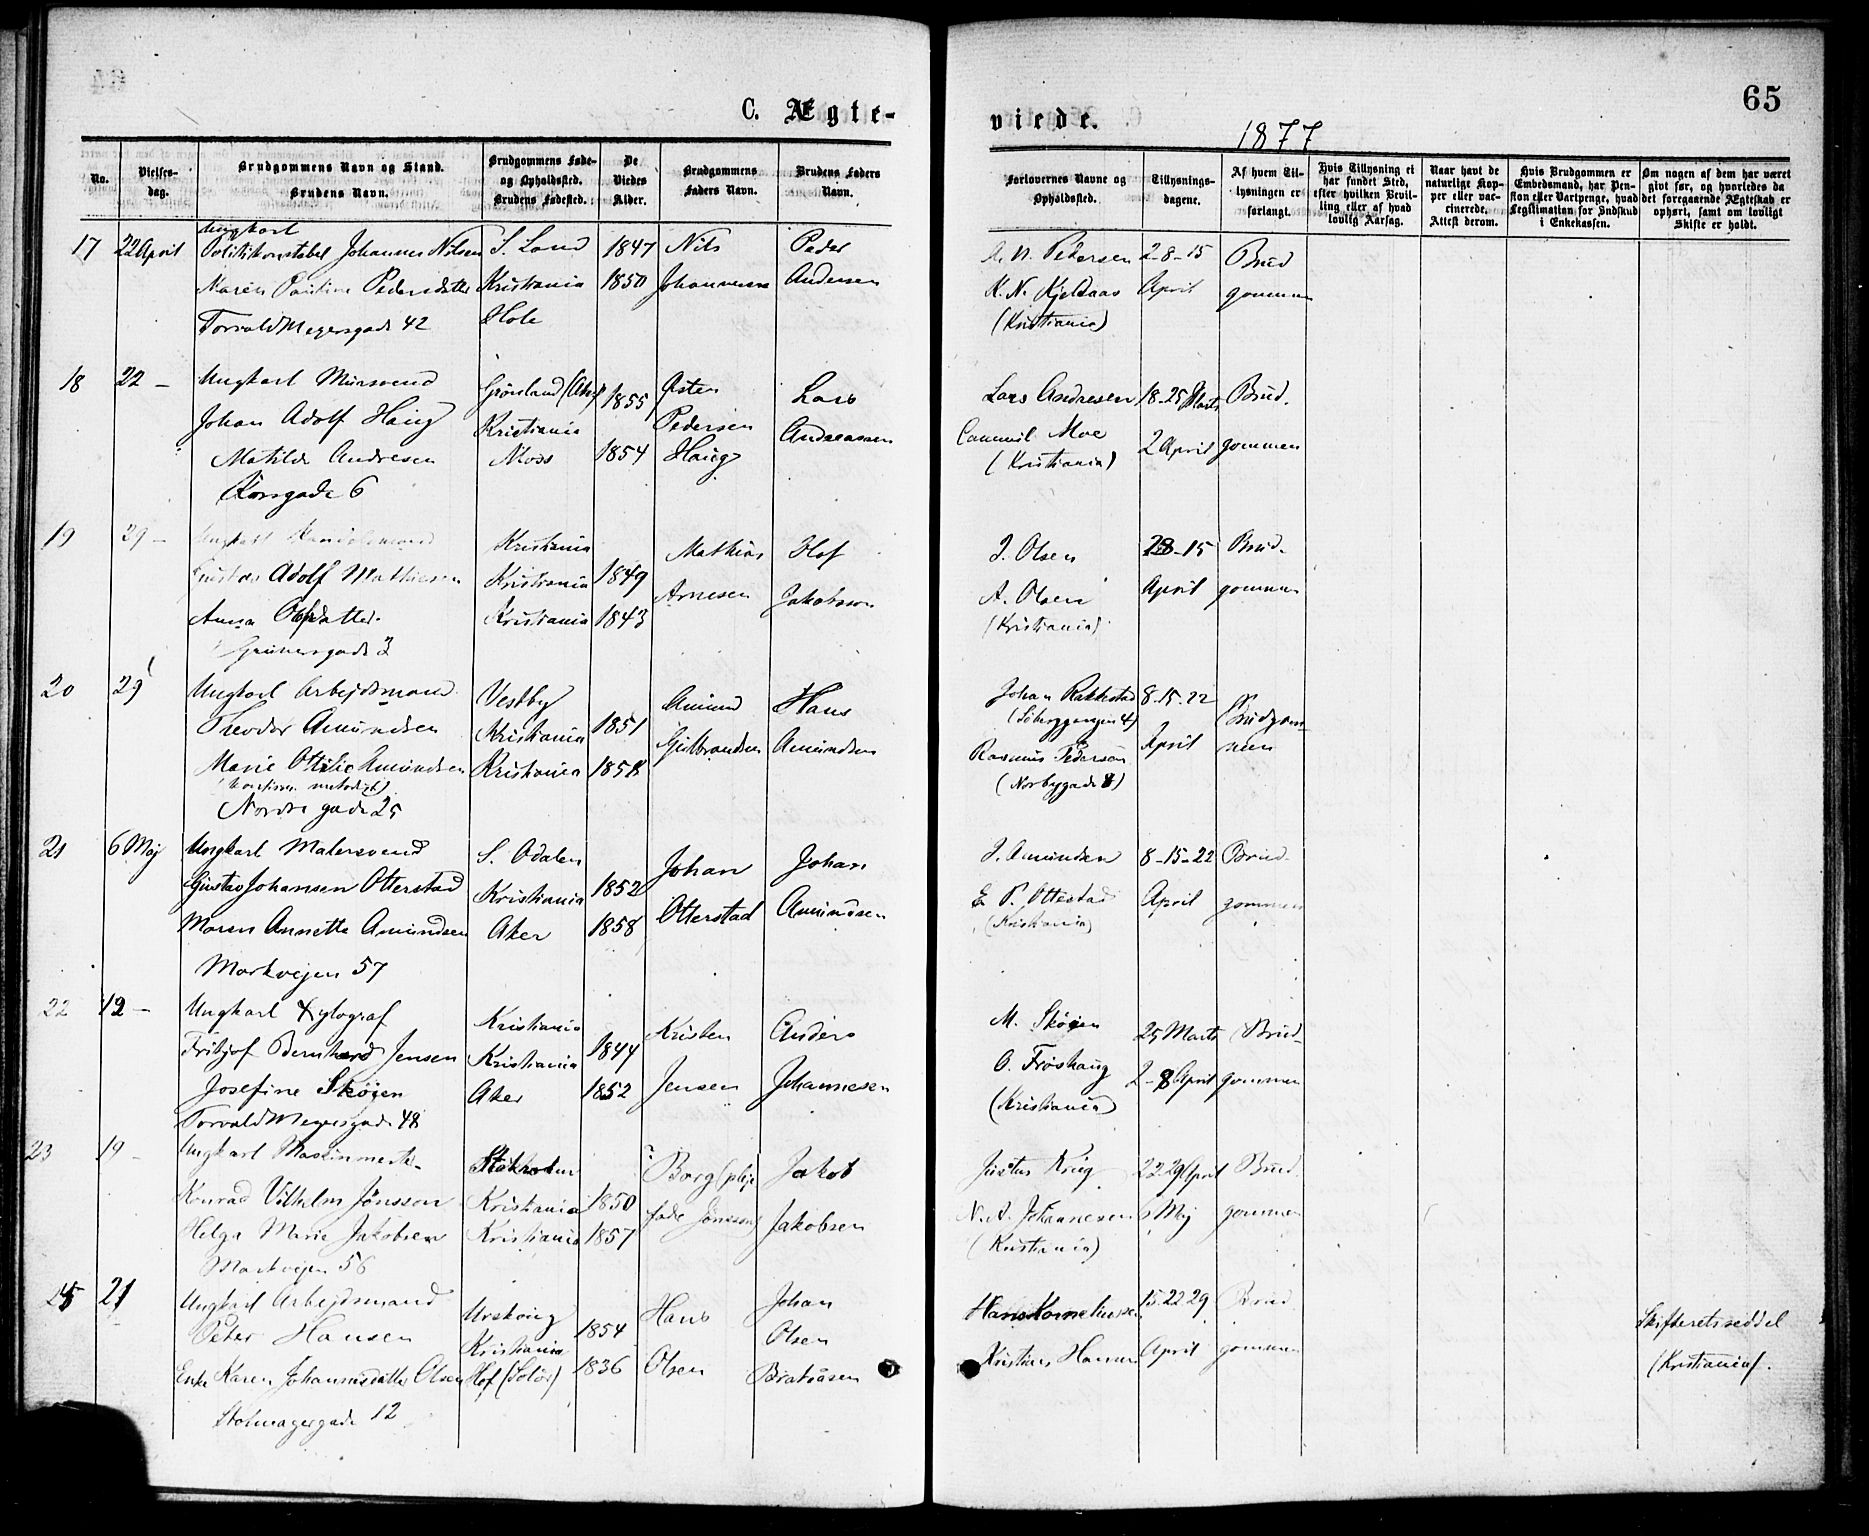 65
C. Ægte-
viede.
1877
No.
Vielses-
dag.
Brudgommens Navn og Stand.
Brudens Navn.
Brudgommens Føde-
og Opholdssted.
Brudens Fødested.
De
Viedes
Alder.
Brudgommens
Faders Navn.
Brudens Faders
Navn.
Forlovernes Navne og
Opholdssted.
Tillysnings-
dagene.
Af hvem Til-
lysningen er
forlangt.
Hvis Tillysning ei
har fundet Sted,
efter hvilken Bevil-
ling eller af hvad
lovlig Aarsag.
Naar havt de
naturlige Kop-
per eller vac-
cinerede.
Attest derom.
Hvis Brudgommen er
Embedsmand, har Pen-
sion eller Vartpenge, hvad
Legitimation for Indskud
i Enkekassen.
Om nogen af dem har været
givt før, og hvorledes da
det foregaaende Ægteskab er
ophørt, samt om lovligt
Skifte er holdt.
17 22 April
Ungkarl
Politikonstabel Johannes Nilsen
Maren Pauline Pedersdatter
Torvald Meyersgade 42
S. Land
Kristiania
Hole
1847
1850
Nils
Johannesen
Peder
Andersen
A. N. Pedersen
K. N. Kjeldaas
(Kristiania)
2-8-15
April
Brud
gommen
18 22 -
Ungkarl Mursvend
Johan Adolf Haug
Matilde Andresen
Korsgade 6
Grønland (Aker)
Kristiania
Moss
1855
1854
Østen
Pedersen
Haug
Lars
Andreassen
Lars Andresen
Moe
(Kristiania)
18-25 Marts
2 April
Brud-
gommen
19 29 -
Ungkarl Handelsmand
Gustav Adolf Mathiesen
Anna Olofsdatter
Grünersgade 3
Kristiania
Kristiania
Kristiania
1849
1843
Mathias
Arnesen
Olof
Jakobsson
J. Olsen
A. Olsen
(Kristiania)
2-8-15
April
Brud-
gommen
20 29
Ungkarl Arbejdsmand
Theodor Amundsen
Marie Ottilie Amundsen
Nordre gade 25
Vestby
Kristiania
Kristiania
1851
1858
Amund
Gulbrandsen
Hans
Amundsen
Johan Rakkestad
Rasmus Pedersen
(Norbygade 8)
8-15-22
April
Brudgom-
men
21 6 Maj
Ungkarl Malersvend
Gustav Johansen Otterstad
Maren Annette Amundsen
Markvejen 57
S. Odalen
Kristiania
Aker
1852
1858
Johan
Otterstad
Johan
Amundsen
J. Amundsen
E. P. Ottestad
(Kristiania)
8-15-22
April
Brud-
gommen
22 12 -
Ungkarl Xylograf
Fritjof Bernhard Jensen
Josefine Skøien
Torvald Meyersgade 48
Kristiania
Kristiania
Aker
1844
1852
Kristen
Jensen
Anders
Johannesen
M. Skøien
O. Frøshaug
(Kristiania)
25 Marts
2-8 April
Brud-
gommen
23 19 -
Ungkarl Maskinmester
Konrad Vilhelm Jönsson
Helga Marie Jakobsen
Markvejen 56
Stokholm
Kristiania
Kristiania
1850
1857
Borg (pleje
fader Jönsson)
Jakob
Jakobsen
Justus Krieg
N. A. Johannesen
(Kristiania)
22-29 April
6 Maj
Brud-
gommen
21
Ungkarl Arbejdsmand
Peter Hansen
Enke Karen Johannesdatter Olsen
Stolmagergade 12
Urskoug
Kristiania
Hof (Solør)
1854
1836
Hans
Olsen
Johan
Olsen
Bratåsen
Hans Korneliussen
Kristian Hansen
15-22 29
April
Brud-
gommen
Skifteretsseddel
(Kristiania).